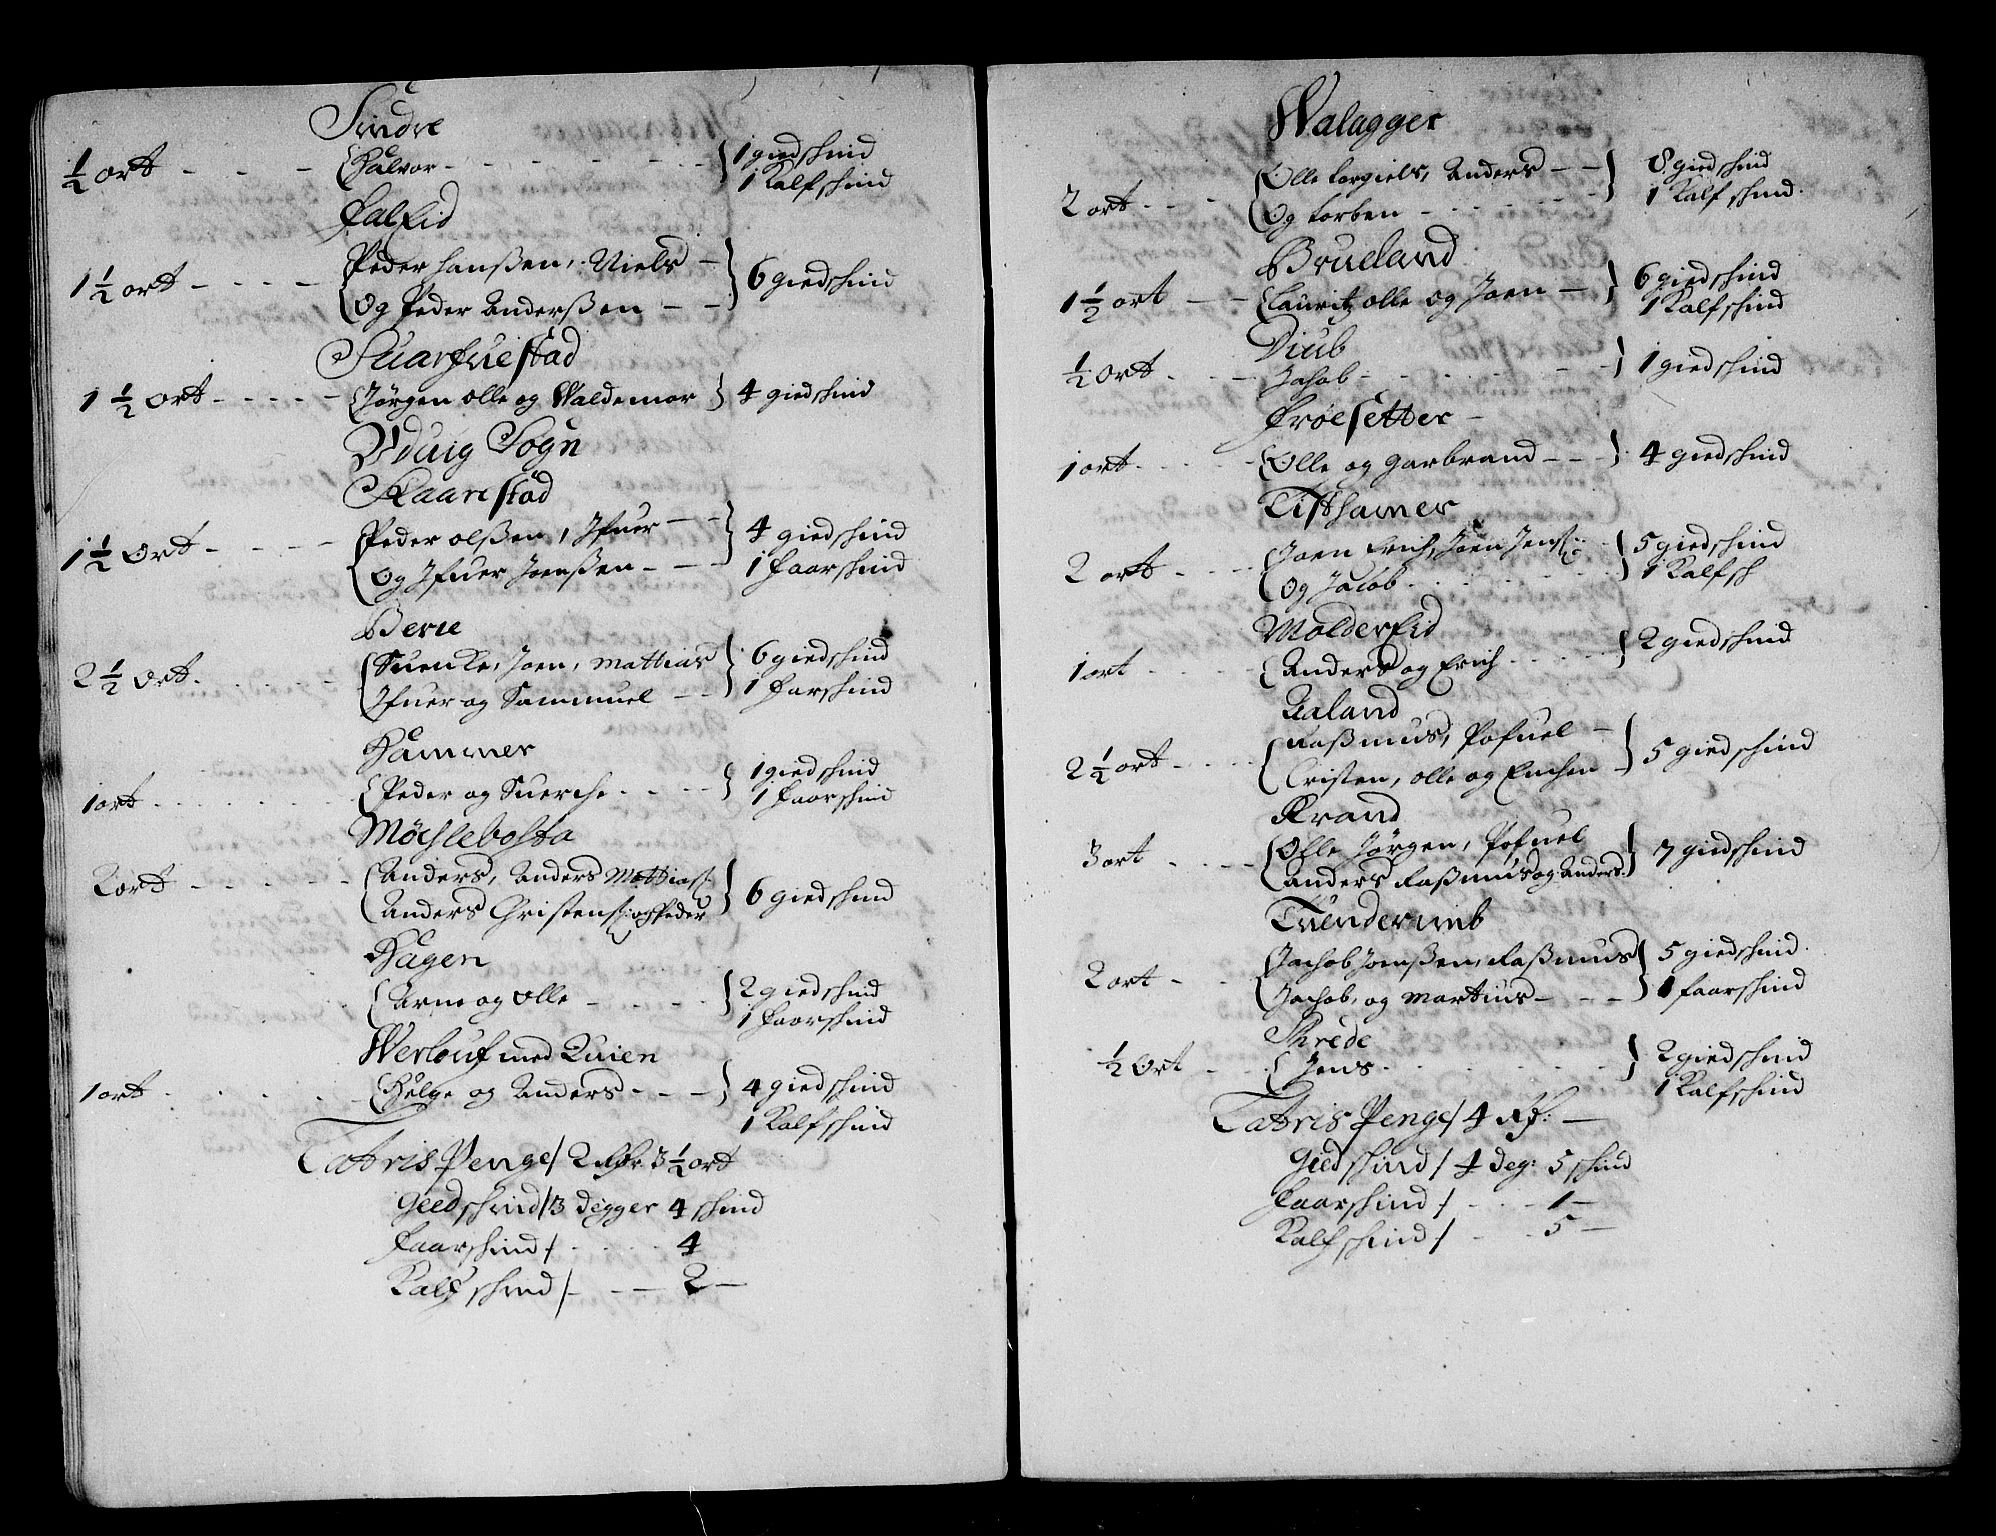 Sindre
½ ort - - - Halvor - - - - - - - 1 giedshind
1 Kalfshind
Faleid
1½ ort - - - - Peder Hanßen, Niels - 6 giedshind
Og Peder Anderßen - -
Suarfuestad
1½ ort - - - - Jørgen olle og Waldemor 4 giedshind
Vduig Sogn
Kaarestad
1½ ort - - - - Peder olßen, Ifuer - - 4 giedshind
Og Ifuer Joenßen - - 1 faarshind
Berie
2½ ort - - - - Suenke, Joen, Mattias 6 giedshind
Ifuer og Sammuel - - 1 farshind
Hammer
1 ort - - - - Peder og Suerche - - - - 1 giedshind
1 faarshind
Möchlebosta
2 ort - - - - Anders, Anders Mattiasß: 6 giedshind
Anders Christensß: og Peder
Hagen
Arne og olle - - - - 2 giedshind
1 faarshind
Werlouf med Quien
1 ort - - - - Helge og Anders - - - 4 giedshind
1 Kalfshind
Latris Penge / 2 Rdr 3½ ort
Geedshind / 3 degger 4 shind
Faarshind / - - - - 4
Kalfshind / - - - 2 -
Walagger
2 ort - - - Olle torgiels, Anders - - 8 giedshind
Og torben - - - - - 1 Kalfshind
Brueland
1½ ort - - Lauritz olle og Joen - 6 giedshind
1 Kalfshind
Diub
½ ort - - - Jachob - - - - - - 1 giedshind
Froesetter -
1 ort - - - - Olle og garbrand - - - 4 giedshind
Tisthamer
2 ort - - - Joen Erich, Joen Jensß: 5 giedshind
Og Jacob - - - - 1 Kalfsh
Moldereid
1 ort - - - Anders og Erich - - - - 2 giedshind
Aaland
2½ ort - - - - Raßmus, Pofuel - 5 giedshind
Cristen, olle og Enchen
Krand
3 ort - - - - Olle Jørgen, Pofuel 7 giedshind
Anders Raßmus og Anders
Tuenderimb
2 ort - - Jachob Joenßen, Raßmus 5 giedshind
Jachob, og Martinus - - - 1 faarshind
Shrede
½ Ort - - Jens - - - - - - 2 giedshind
1 Kalfshind
Latris Penge / 4 Rd: -
Geedshind / 4 deg: 5 shind
Faarshind / - - - 1 -
Kalfshind / - - - 5 -